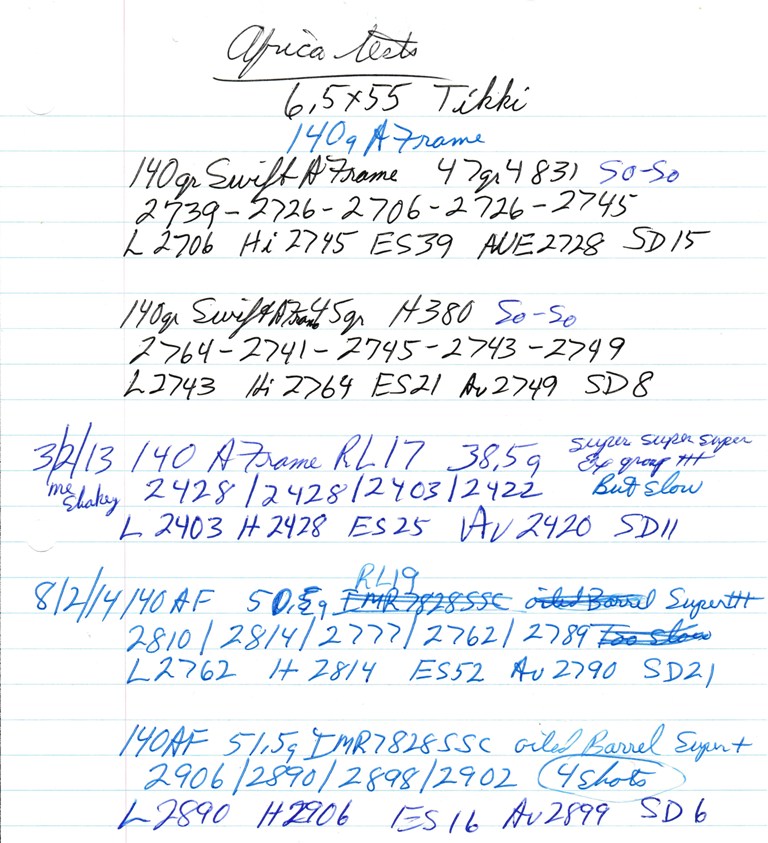 Africa tests
6,5x55 Tikki
140g A Frame
140gr Swift A Frame 47gr 4831 So-So
2739-2726-2706-2726-2745
L 2706 Hi 2745 ES39 AVE2728 SD15
140gr Swift A Frame 45gr H380 So-So
2764-2741-2745-2743-2749
L2743 Hi 2764 ES21 Av 2749 SD8
3/2/13 140 A Frame RL17 38,5g super super super
group +++
me Shakey 2428/2428/2403/2422 But slow
L 2403 H 2428 ES25 Av 2420 SD11
RL19
8/2/14 140 AF 50,5g IMR7828SSC oiled Barrel Super+++
2810/2814/2777/2762/2789 Too slow
L2762 H 2814 ES52 Av 2790 SD21
140AF 51,5g IMR7828SSC oiled Barrel Super+
2906/2890/2898/2902 4 Shots
L2890 H2906 ES16 Av2899 SD6